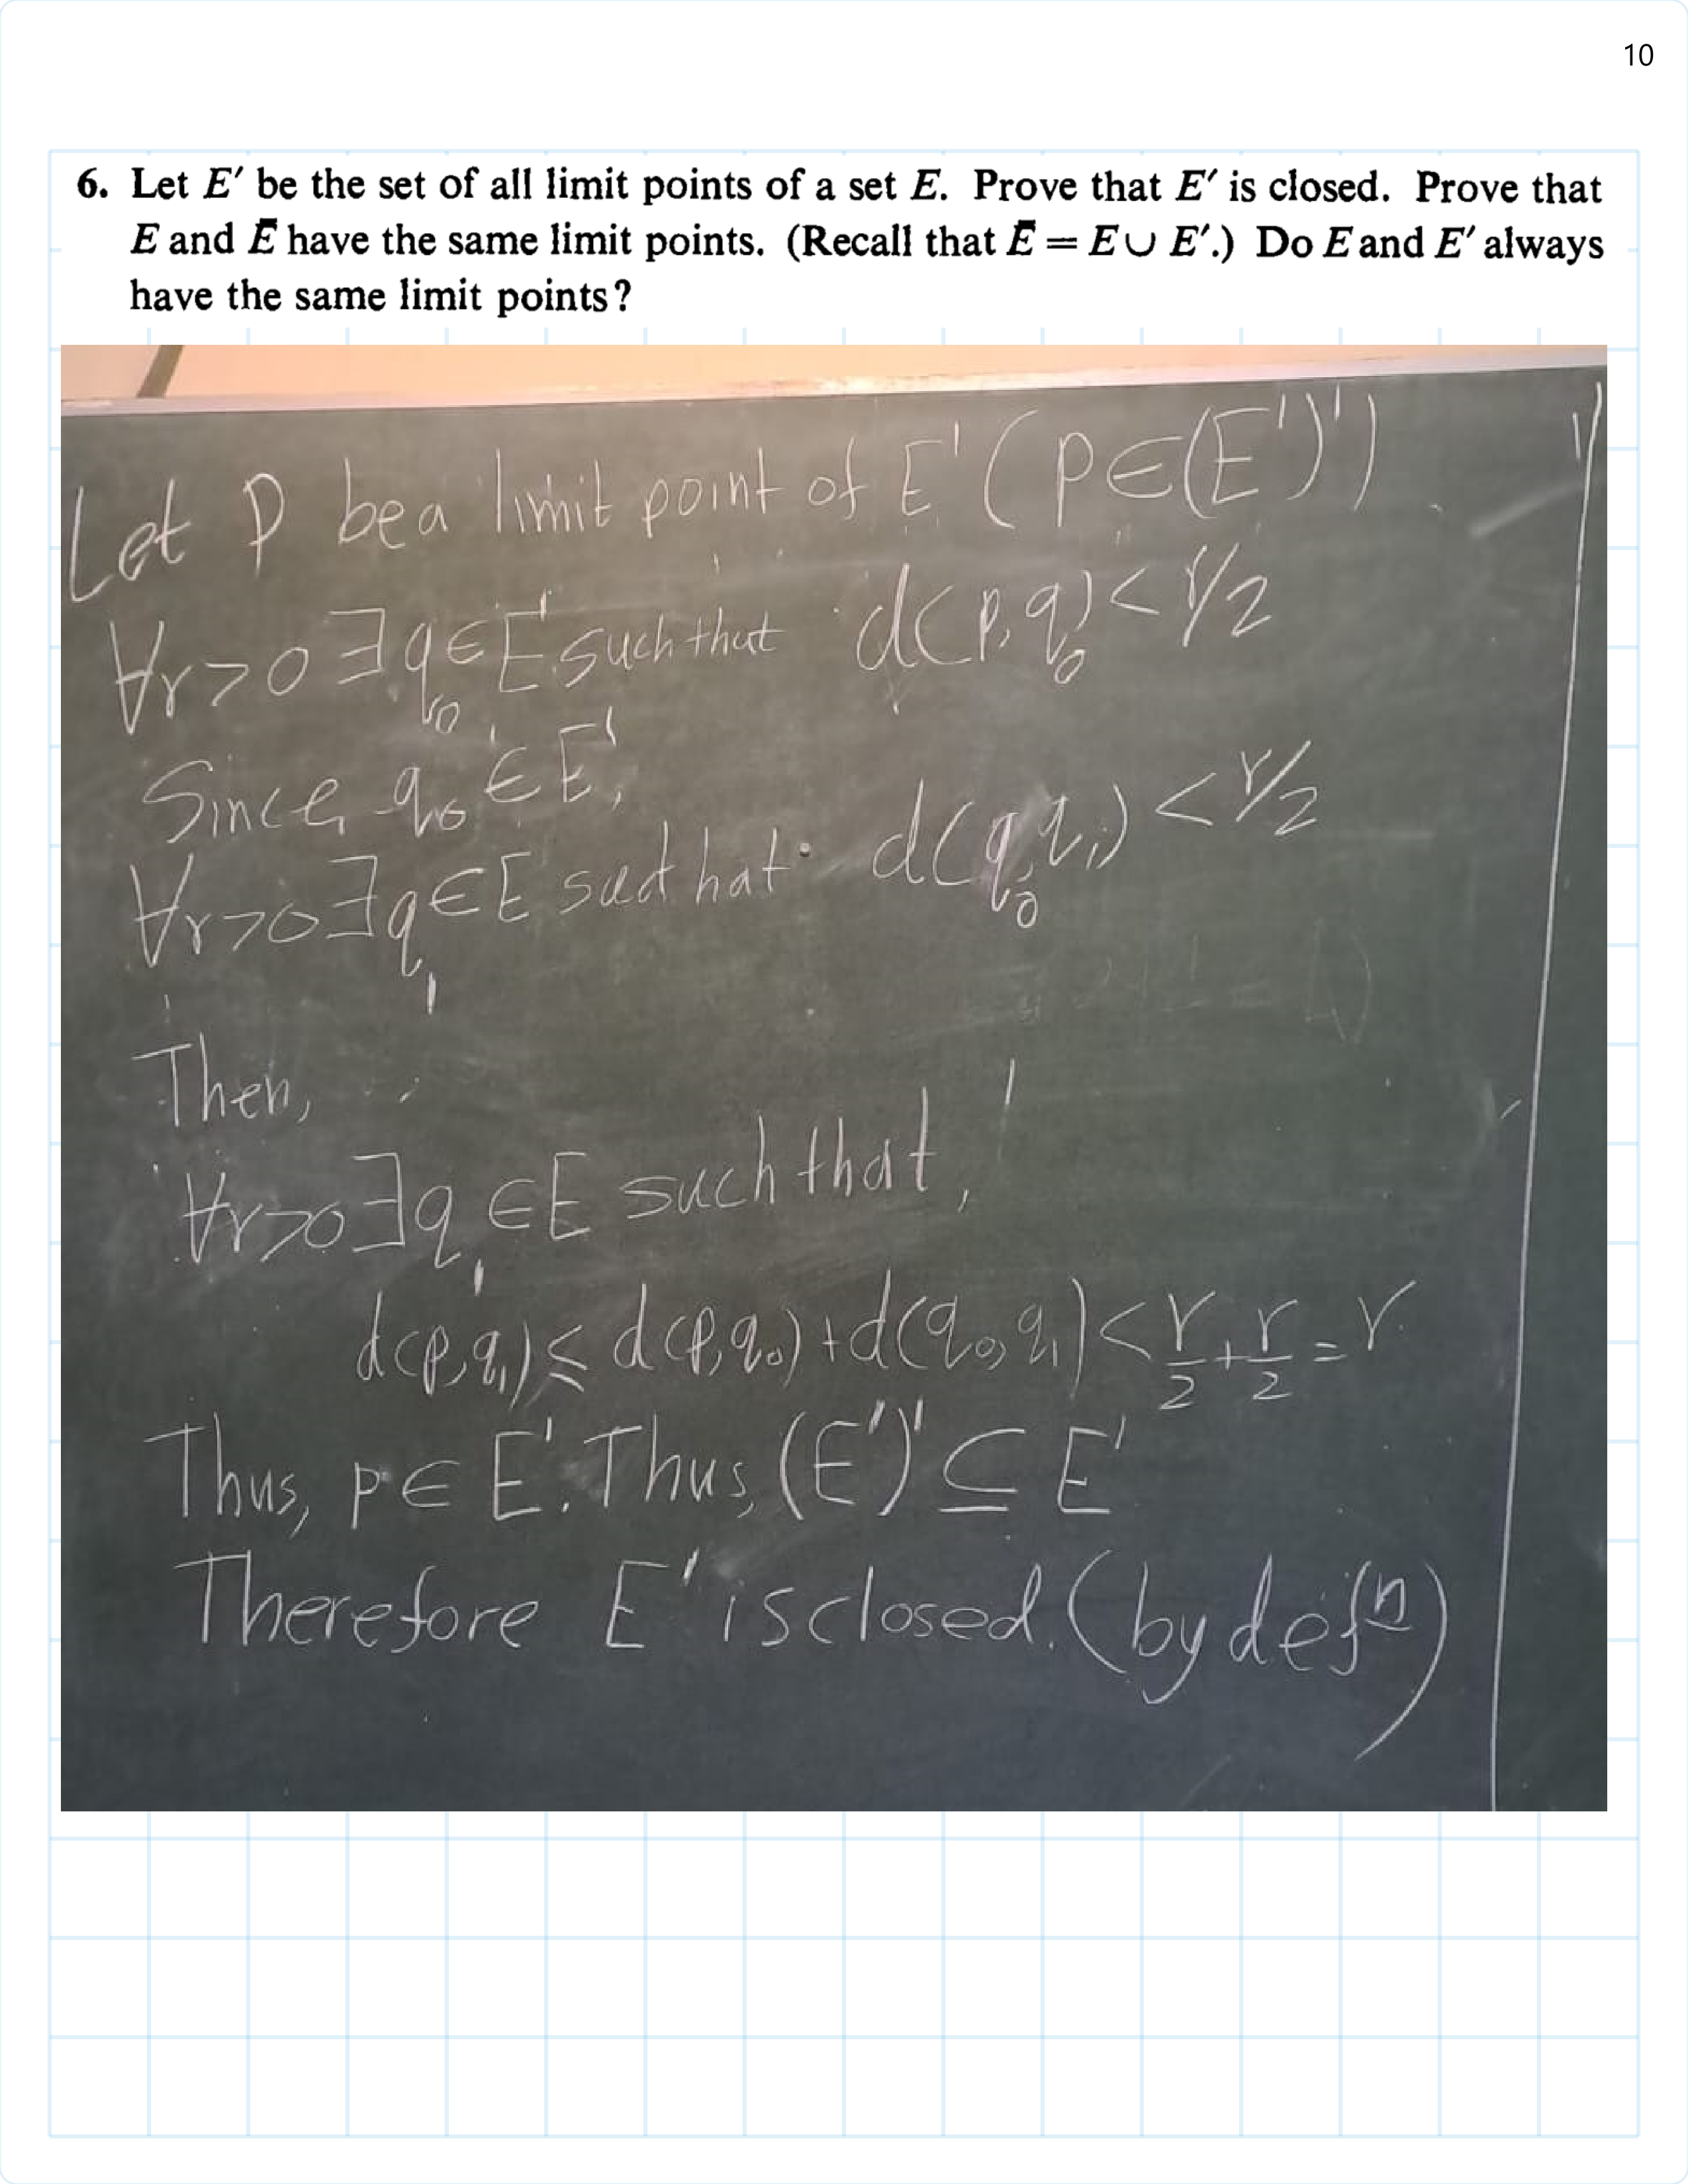 10
6. Let E′ be the set of all limit points of a set E. Prove that E′ is closed. Prove that
E and Ē have the same limit points. (Recall that Ē = E ∪ E′.) Do E and E′ always
have the same limit points?
Let p be a limit point of E' (p∈(E')')
∀r>0 ∃q₀∈E' such that d(p,q₀)<r/2
Since q₀∈E',
∀r>0 ∃q₁∈E such that d(q₀,q₁)<r/2
Then,
∀r>0 ∃q₁∈E such that,
d(p,q₁)≤d(p,q₀)+d(q₀,q₁)<r/2+r/2=r
Thus, p∈E'. Thus, (E')'⊆E'
Therefore E' is closed. (by defⁿ)